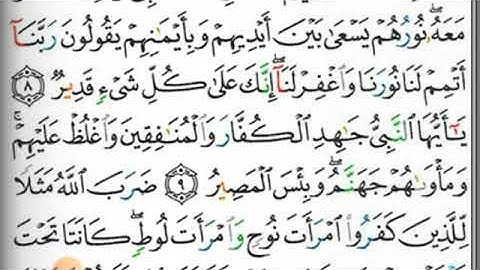 مَعَهُۥۖ نُورُهُمْ يَسْعَىٰ بَيْنَ أَيْدِيهِمْ وَبِأَيْمَٰنِهِمْ يَقُولُونَ رَبَّنَآ
أَتْمِمْ لَنَا نُورَنَا وَٱغْفِرْ لَنَآۖ إِنَّكَ عَلَىٰ كُلِّ شَىْءٍ قَدِيرٌ ٨
يَٰٓأَيُّهَا ٱلنَّبِىُّ جَٰهِدِ ٱلْكُفَّارَ وَٱلْمُنَٰفِقِينَ وَٱغْلُظْ عَلَيْهِمْۚ
وَمَأْوَىٰهُمْ جَهَنَّمُۖ وَبِئْسَ ٱلْمَصِيرُ ٩ ضَرَبَ ٱللَّهُ مَثَلًا
لِّلَّذِينَ كَفَرُوا۟ ٱمْرَأَتَ نُوحٍ وَٱمْرَأَتَ لُوطٍۖ كَانَتَا تَحْتَ